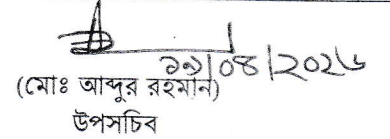 ১৯/০৪/২০২৬
(মোঃ আব্দুর রহমান)
উপসচিব